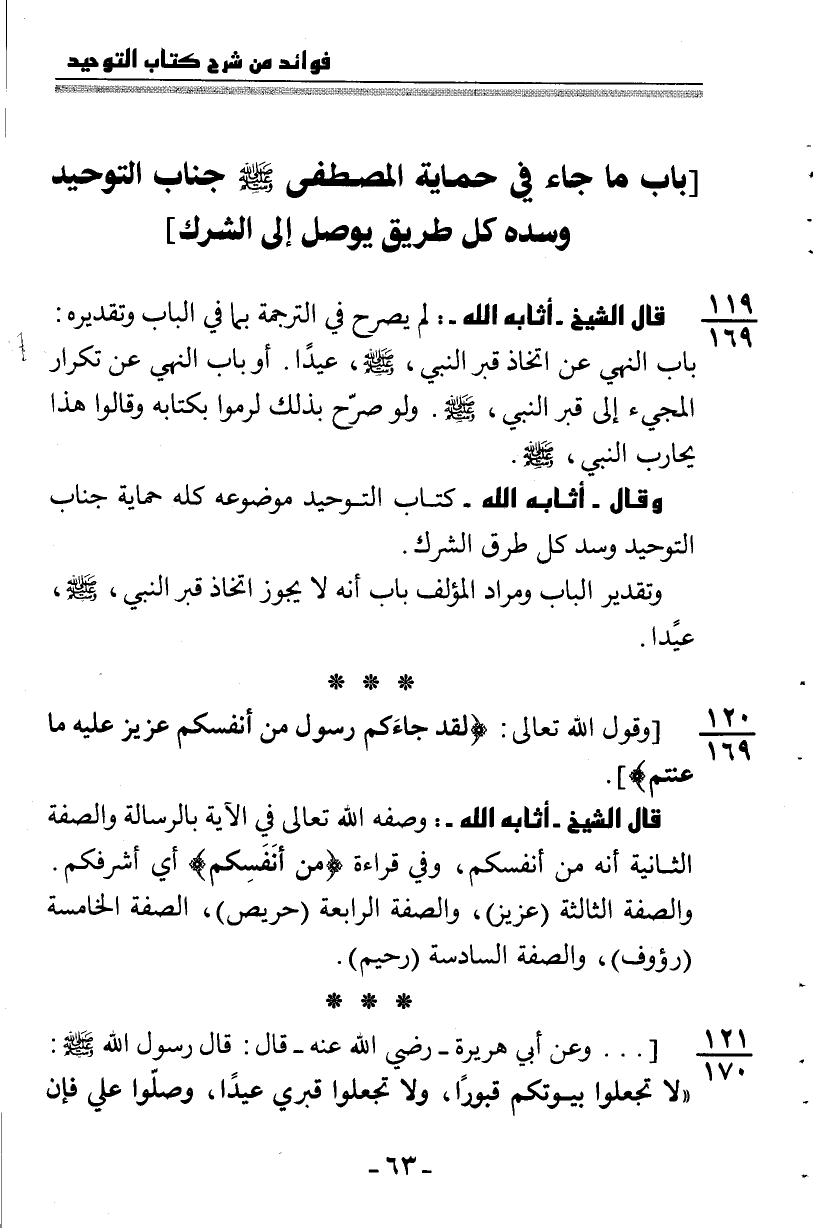 فوائد من شرح كتاب التوحيد
[باب ما جاء في حماية المصطفى ﷺ جناب التوحيد
وسده كل طريق يوصل إلى الشرك]
١١٩
١٦٩
قال الشيخ ـ أثابه الله ـ: لم يصرح في الترجمة بما في الباب وتقديره:
باب النهي عن اتخاذ قبر النبي، ﷺ، عيدًا. أو باب النهي عن تكرار
المجيء إلى قبر النبي، ﷺ. ولو صرّح بذلك لرموا بكتابه وقالوا هذا
يحارب النبي، ﷺ.
وقال ـ أثابه الله ـ كتاب التوحيد موضوعه كله حماية جناب
التوحيد وسد كل طرق الشرك.
وتقدير الباب ومراد المؤلف باب أنه لا يجوز اتخاذ قبر النبي، ﷺ،
عيًدا.
* * *
١٢٠
١٦٩
[وقول الله تعالى: ﴿لقد جاءكم رسول من أنفسكم عزيز عليه ما
عنتم﴾].
قال الشيخ ـ أثابه الله ـ: وصفه الله تعالى في الآية بالرسالة والصفة
الثانية أنه من أنفسكم، وفي قراءة ﴿من أنَفَسِكم﴾ أي أشرفكم.
والصفة الثالثة (عزيز)، والصفة الرابعة (حريص)، الصفة الخامسة
(رؤوف)، والصفة السادسة (رحيم).
* * *
١٢١
١٧٠
[... وعن أبي هريرة ـ رضي الله عنه ـ قال: قال رسول الله ﷺ:
«لا تجعلوا بيوتكم قبورًا، ولا تجعلوا قبري عيدًا، وصلّوا علي فإن
- ٦٣ -